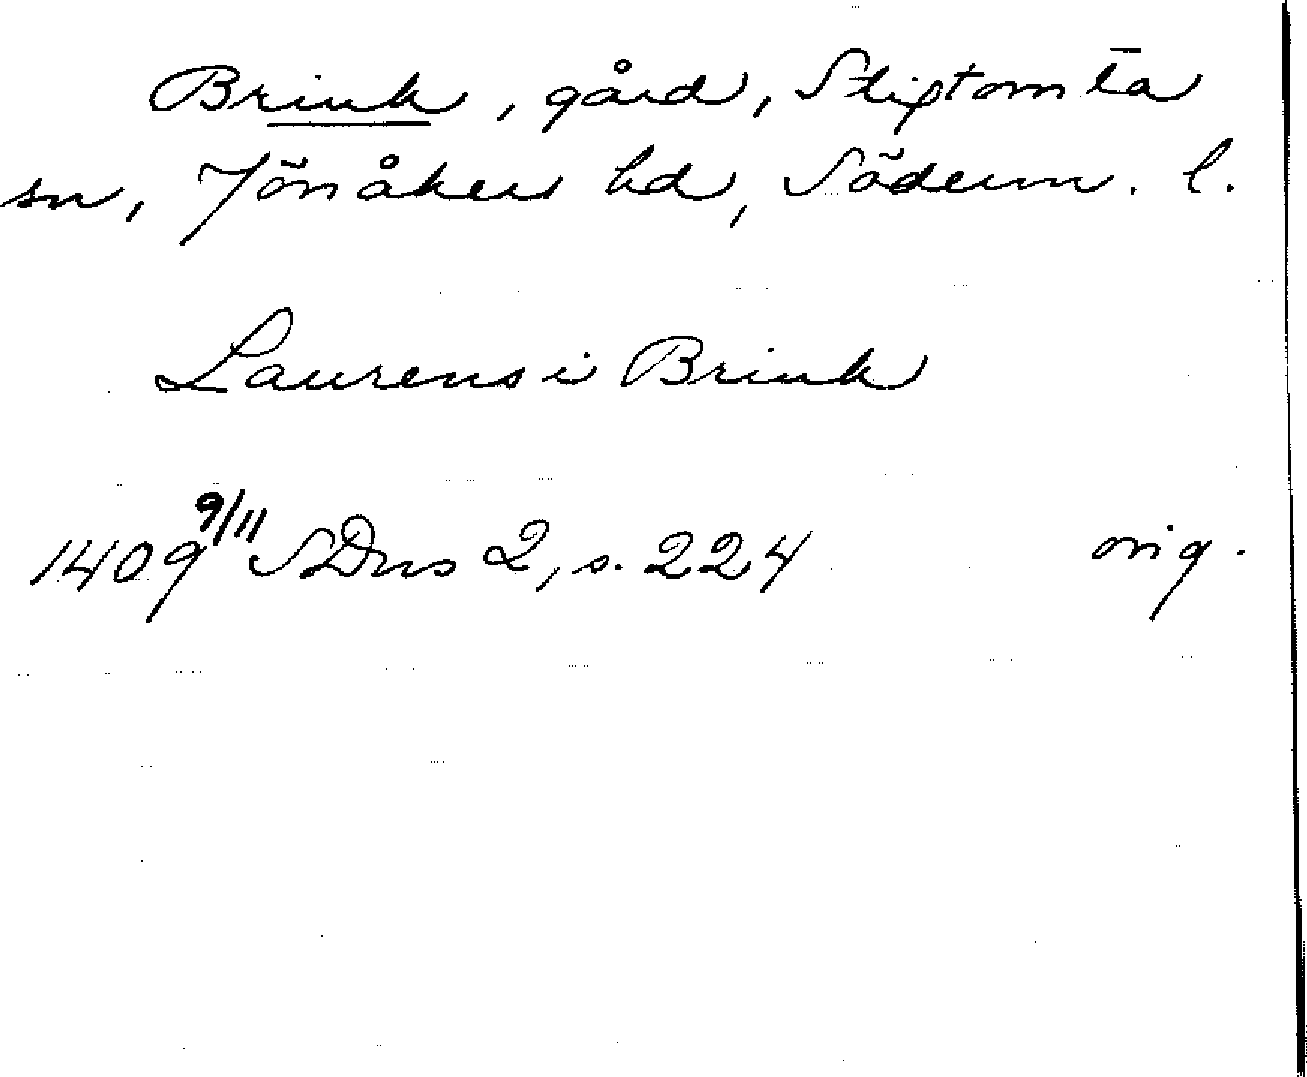 Brink, gård, Stigtomta
sn, Jönåkers hd, Söderm. l.
Laurens i Brink
1409 9/11 SDns 2, s. 224 orig.